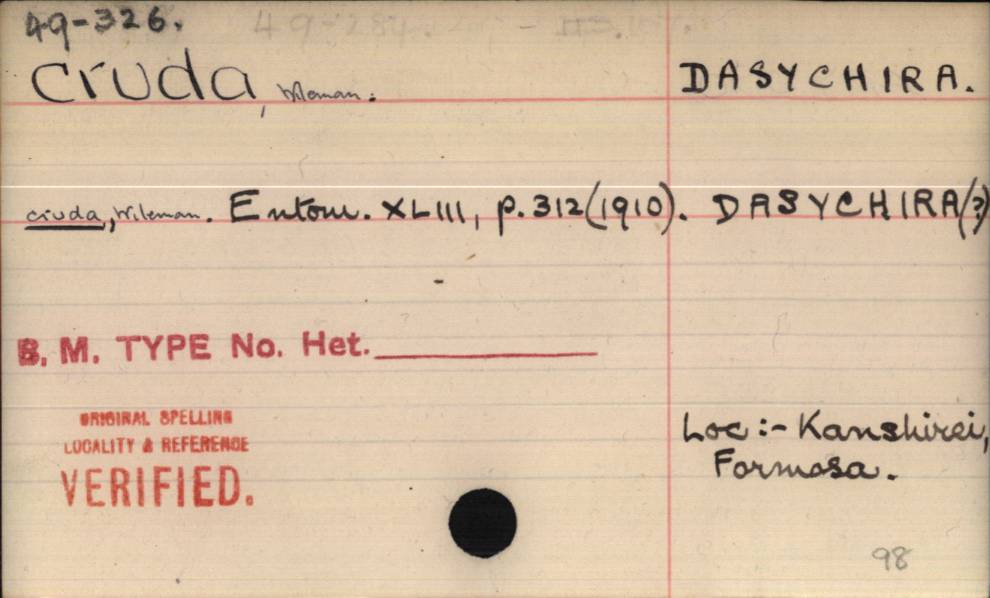 49-326. 49-284.
cruda, Wileman. DASYCHIRA.
cruda, Wileman. Entom. XLIII, p. 312 (1910). DASYCHIRA (?)
B. M. TYPE No. Het.
ORIGINAL SPELLING
LOCALITY & REFERENCE
VERIFIED.
Loc:- Kanshirei,
Formosa.
98